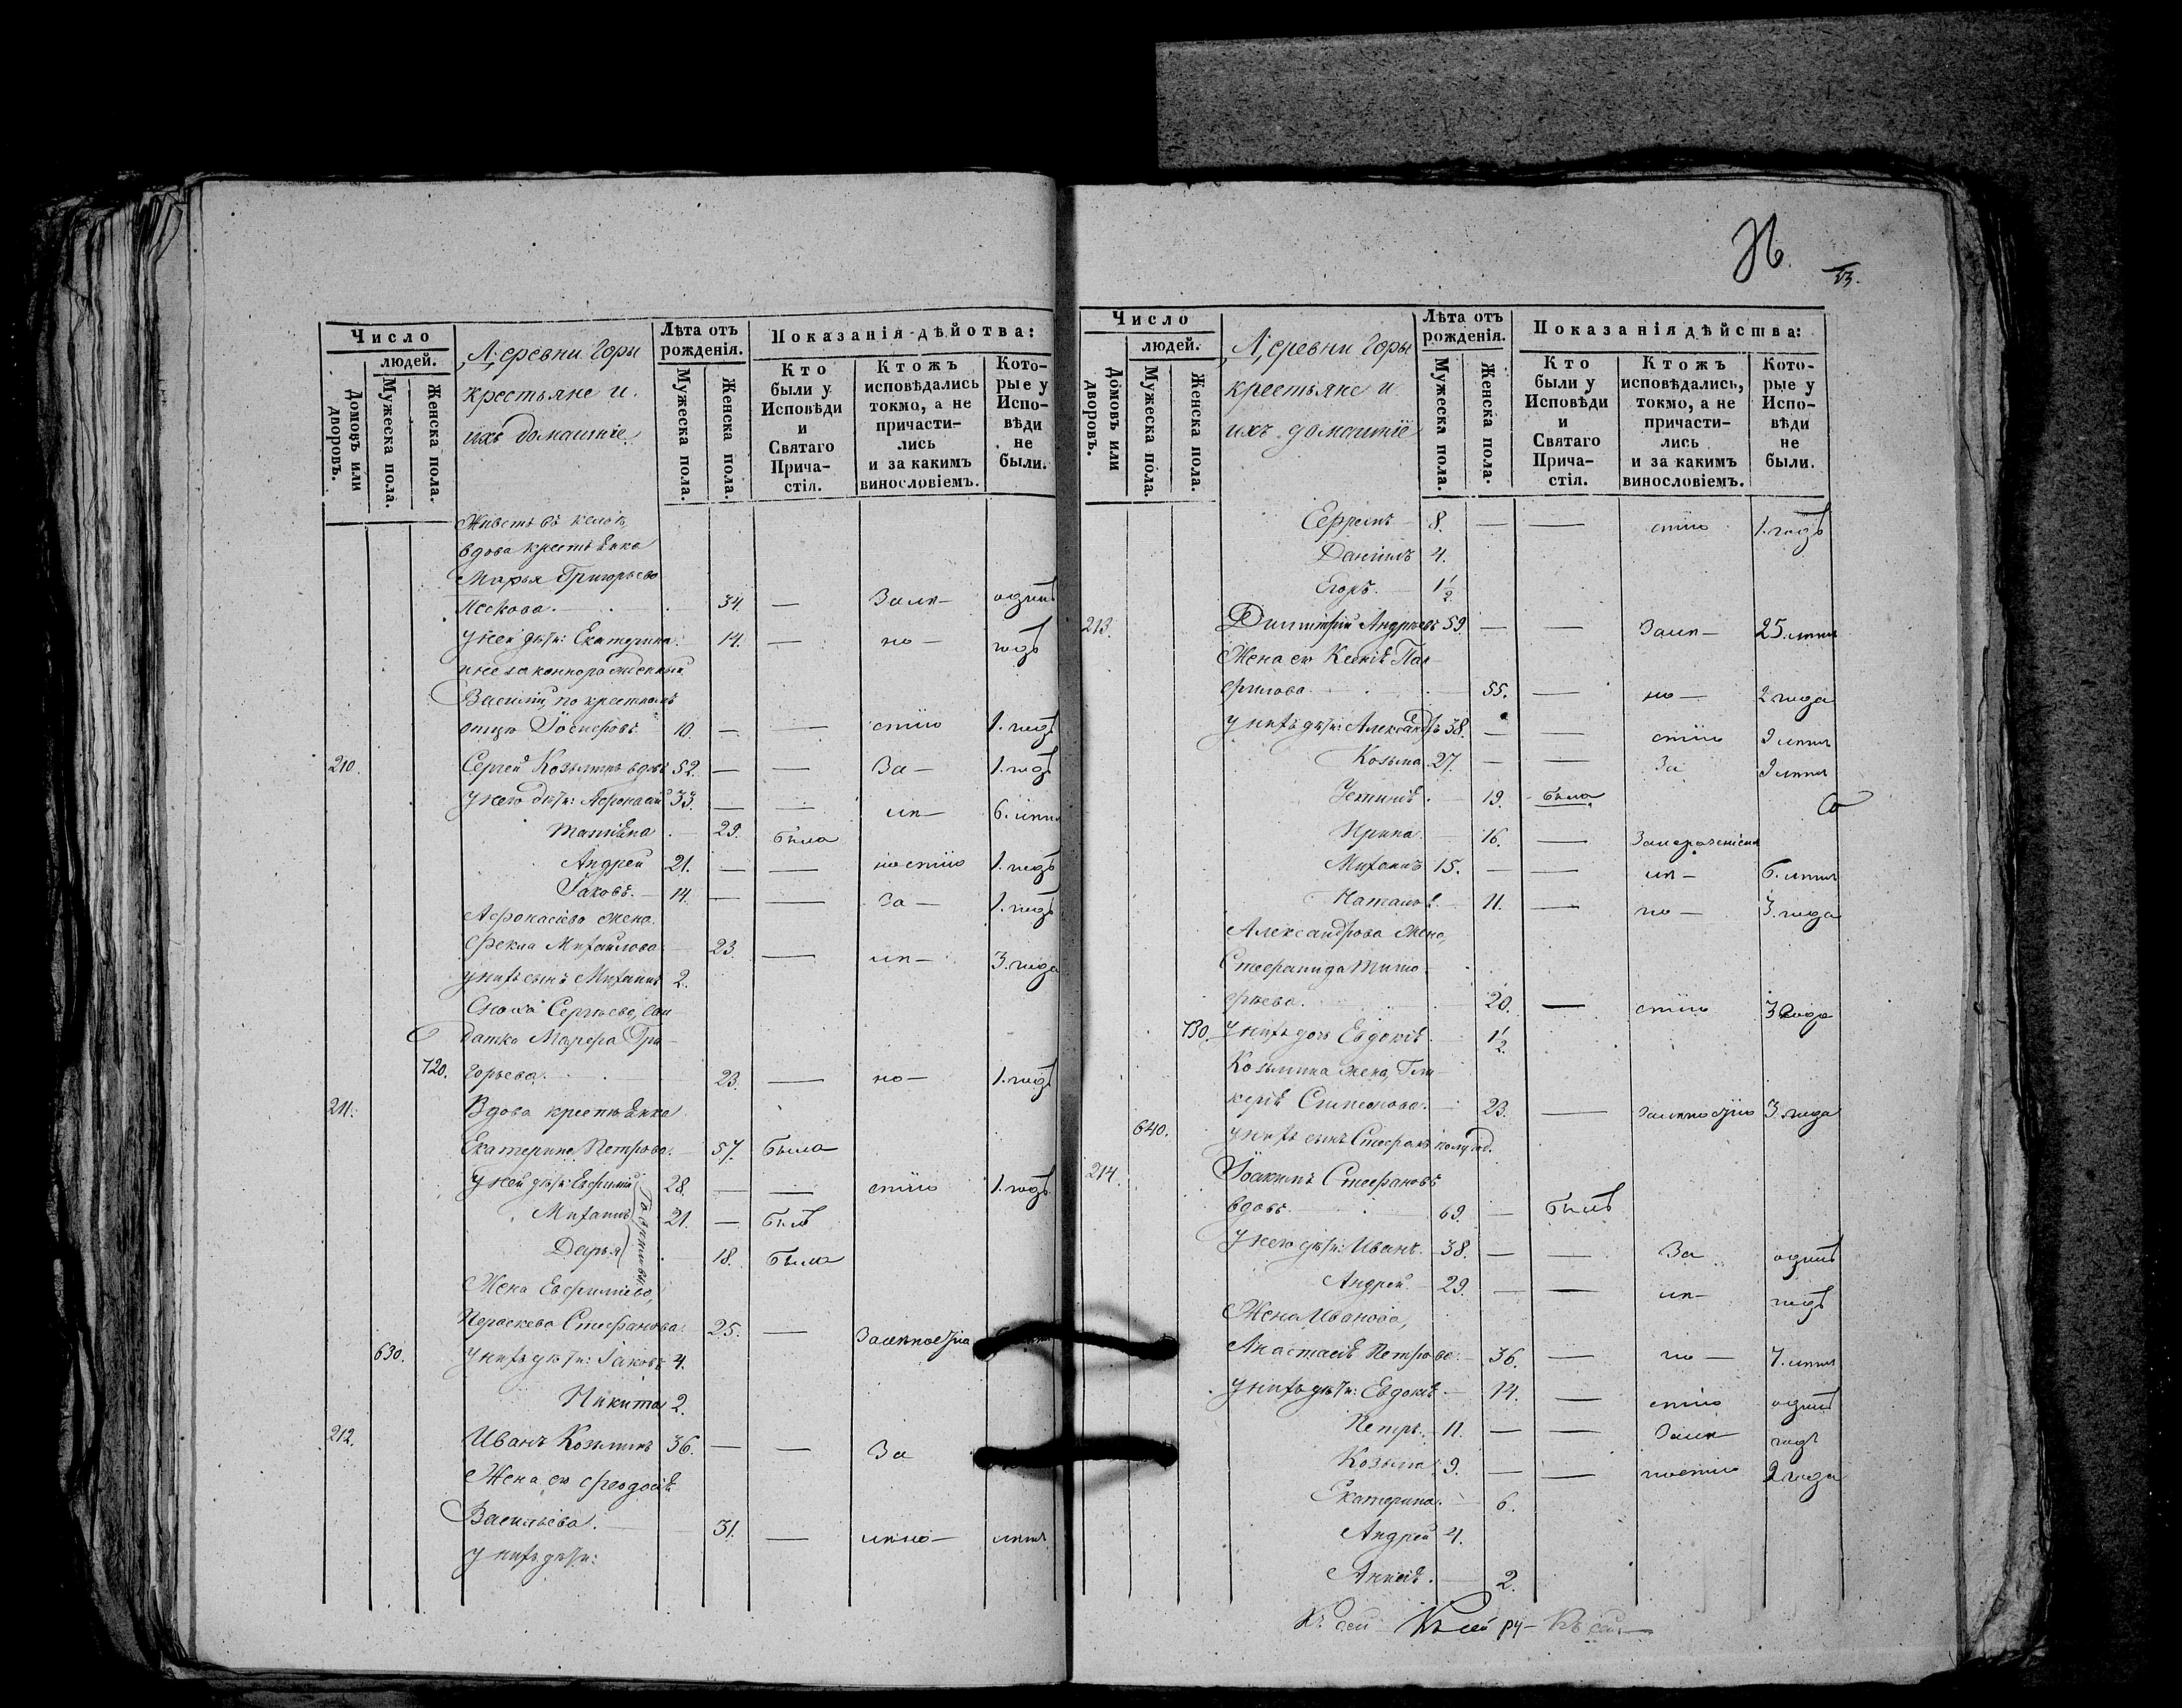 Число
людей.
Домовъ или дворовъ.
Мужеска пола.
Женска пола.
Деревни Горы
крестьяне и
ихъ домашніе
Лѣта отъ рожденія.
Мужеска пола.
Женска пола.
Показанія дѣйства:
Кто были у Исповѣди и Святаго Прича-стія.
Ктожъ исповѣдались токмо, а не причасти-лись и за какимъ винословіемъ.
Кото-рые у Испо-вѣди не были.
вдова крестьянка
Марья Григорьева
34. — За лѣ- одинъ
у ней дѣти: Екатерина. 14. — но- годъ
и незаконнорожденный
Василій по крестномъ
отцѣ Іосифовъ 10. — — стію 1. годъ
210. Сергей Козьминъ вдовъ 52. — — За- 1. годъ
у него дѣти: Афонасій 33. — — лѣ- 6. лѣтъ
Татіяна 29. была
Андрей 21. — — ностію 1. годъ
Іаковъ 14. — — За- 1. годъ
Афонасіева жена
Фекла Михайлова 23. — лѣ- 3. года
у нихъ сынъ Михаилъ 2.
Сноха Сергѣева, сол-
датка Марфа Гри-
720. горьева. 23. — но- 1. годъ
211. Вдова крестьянка
Екатерина Петрова. 57. была
у ней дѣти: Евфимій 28. — — стію 1. годъ
Михаилъ 21. — былъ
Дарья 18. была
Жена Евфиміева,
Параскева Стефанова 25. — За лѣностію
630. у нихъ дѣти: Іаковъ 4.
Никита 2.
212. Иванъ Козьминъ 36. — — За
Жена его Феодосія
Васильева. 31. — лѣно- лѣтъ
у нихъ дѣти:
53.
Число
людей.
Домовъ или дворовъ.
Мужеска пола.
Женска пола.
Деревни Горы
крестьяне и
ихъ домашніе
Лѣта отъ рожденія.
Мужеска пола.
Женска пола.
Показанія дѣйства:
Кто были у Исповѣди и Святаго Прича-стія.
Ктожъ исповѣдались, токмо, а не причасти-лись и за какимъ винословіемъ.
Кото-рые у Испо-вѣди не были.
Ефремъ 8. — — стію 1. годъ
Даніилъ 4.
Егоръ. 1½
213. Димитрій Андреевъ 59. — — За лѣ- 25. лѣтъ
Жена его Ксенія Пан-
филова 55. — но- 2 года
у нихъ дѣти: Александръ 38. — — стію 9 лѣтъ
Козьма 27. — — За 9 лѣтъ
Устинія 19. была
Ирина 16. —
Михаилъ 15. — — лѣ- 6. лѣтъ
Наталья 11. — но- 3. года
Александрова жена,
Стефанида Тимо-
фѣева. 20. — стію 3 года
730. у нихъ дочь Евдокія 1½
Козьмина жена, Гли-
керія Симеонова. 23. — За лѣностію 3. года
640. у нихъ сынъ Стефанъ полугод.
214. Іоакимъ Стефановъ
вдовъ 69. — былъ
у него дѣти: Иванъ. 38. — — За одинъ
Андрей 29. — — лѣ- годъ
Жена Иванова,
Анастасія Петрова 36. — но- 7. лѣтъ
у нихъ дѣти: Евдокія 14. — стію одинъ
Петръ. 11. — — За лѣ- годъ
Козьма 9. — — ностію 2 года
Екатерина. 6.
Андрей 4.
Анисія. 2.
Къ сей Къ сей ру- Къ сей